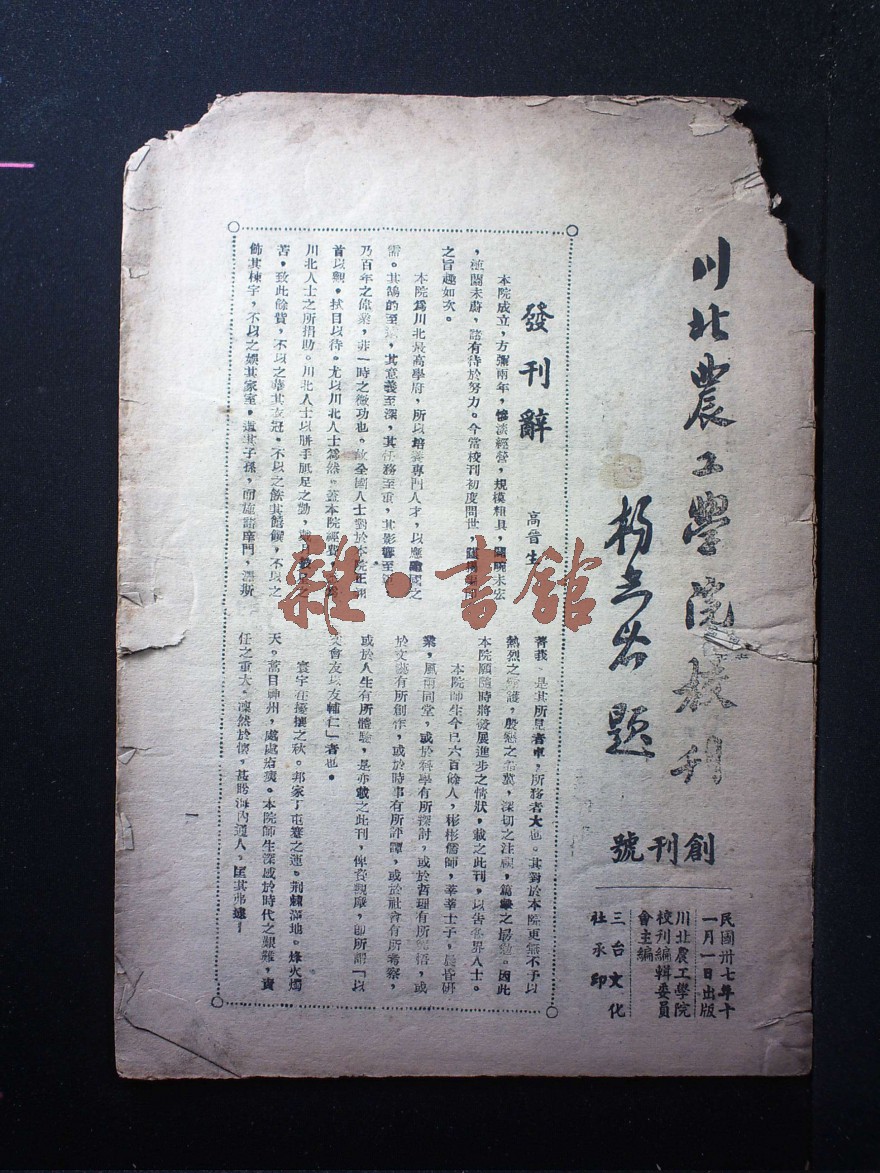 川北農工學院校刊
題
創刊號
民國卅七年十
一月一日出版
川北農工學院
校刊編輯委員
會主編
三台文化
社承印
發刊辭
高晋生
本院成立，方彌兩年，慘淡經營，規模粗具，未宏
，未蔚，諸有待於努力。今當校刊初度問世，
之旨趣如次。
本院爲川北最高學府，所以培養專門人才，以應國之
需。其鵠的至，其意義至深，其任務至重，其影響至
乃百年之偉業，非一時之微功也。故全國人士對於本院正
首以觀，拭目以待。尤以川北人士爲然。蓋本院經費，
川北人士之所捐助。川北人士以胼手胝足之勤，之
苦，致此餘貲，不以之華其衣冠，不以之飫其饍饌，不以之
飾其棟宇，不以之娛其家室，遺其子孫，而施諸庠門，
菁莪，是其所見者卓，所務者大也。其對於本院更無不予以
熱烈之護，殷懃之，深切之注視，篤摯之。因此
本院願隨時將發展進步之情狀，載之此刊，以告各界人士。
本院師生今已六百餘人，彬彬儒師，莘莘士子，晨昏研
業，風雨同堂，或於科學有所探討，或於哲理有所悟，或
於文藝有所創作，或於時事有所評譚，或於社會有所考察，
或於人生有所體驗，是亦載之此刊，俾資觀摩，卽所謂「以
文會友以友輔仁」者也。
寰宇在擾攘之秋。邦家丁屯蹇之運。荆棘滿地。烽火燭
天。蒿目神州，處處瘡痍。本院師生深感於時代之艱難，責
任之重大，凜然於懷，甚盼海內通人，匡其弗逮！
一
雜·書館